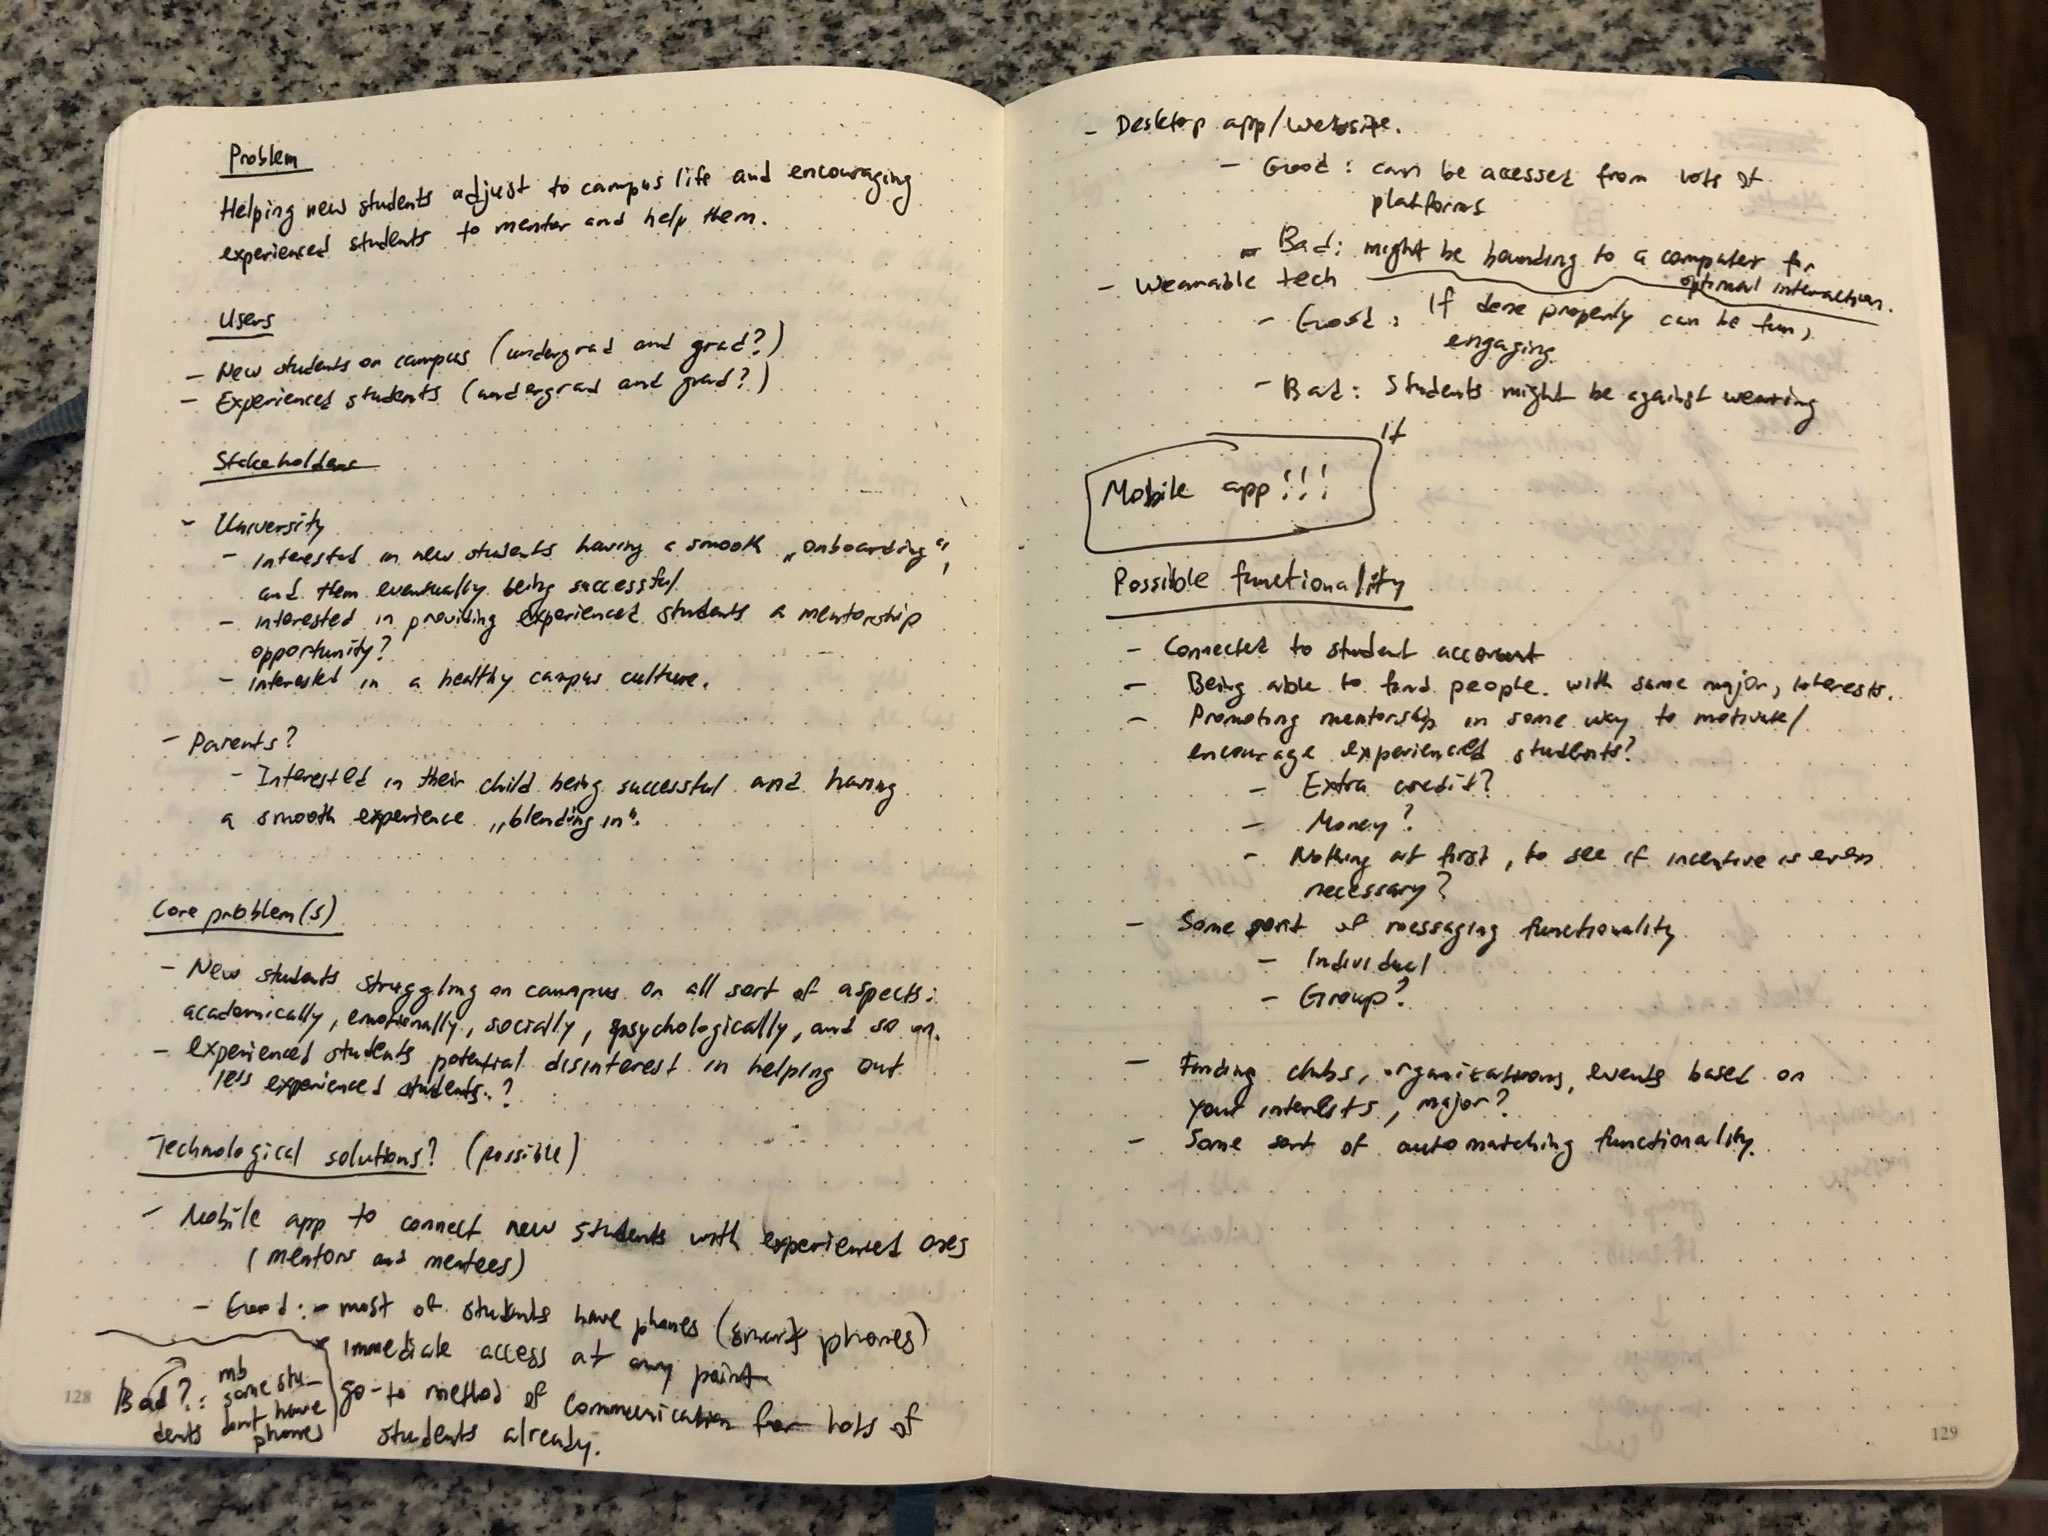 Problem
Helping new students adjust to campus life and encouraging
experienced students to mentor and help them.
Users
- New students on campus (undergrad and grad?)
- Experienced students (undergrad and grad?)
Stakeholders
- University
- interested in new students having a smooth „onboarding“,
and them eventually being successful
- interested in providing experienced students a mentorship
opportunity?
- interested in a healthy campus culture.
- Parents?
- Interested in their child being successful and having
a smooth experience „blending in“.
Core problem(s)
- New students struggling on campus on all sort of aspects:
academically, emotionally, socially, psychologically, and so on.
- experienced students potential disinterest in helping out
less experienced students..?
Technological solutions? (possible)
- Mobile app to connect new students with experienced ones
(mentors and mentees)
- Good: - most of students have phones (smart phones)
immediate access at any point
go-to method of communication for lots of
students already.
Bad?: mb
some stu-
dents dont have
phones
128
- Desktop app/website.
- Good: can be accessed from lots of
platforms
- Bad: might be bounding to a computer for
optimal interaction.
- Wearable tech
- Good: If done properly can be fun,
engaging
- Bad: Students might be against wearing
it
Mobile app!!!
Possible functionality
- Connected to student account
- Being able to find people with same major, interests.
- Promoting mentorship in some way to motivate/
encourage experienced students?
- Extra credit?
- Money?
- Nothing at first, to see if incentive is even
necessary?
- Some sort of messaging functionality
- Individual
- Group?
- Finding clubs, organizations, events based on
your interests, major?
- Some sort of automatching functionality.
129